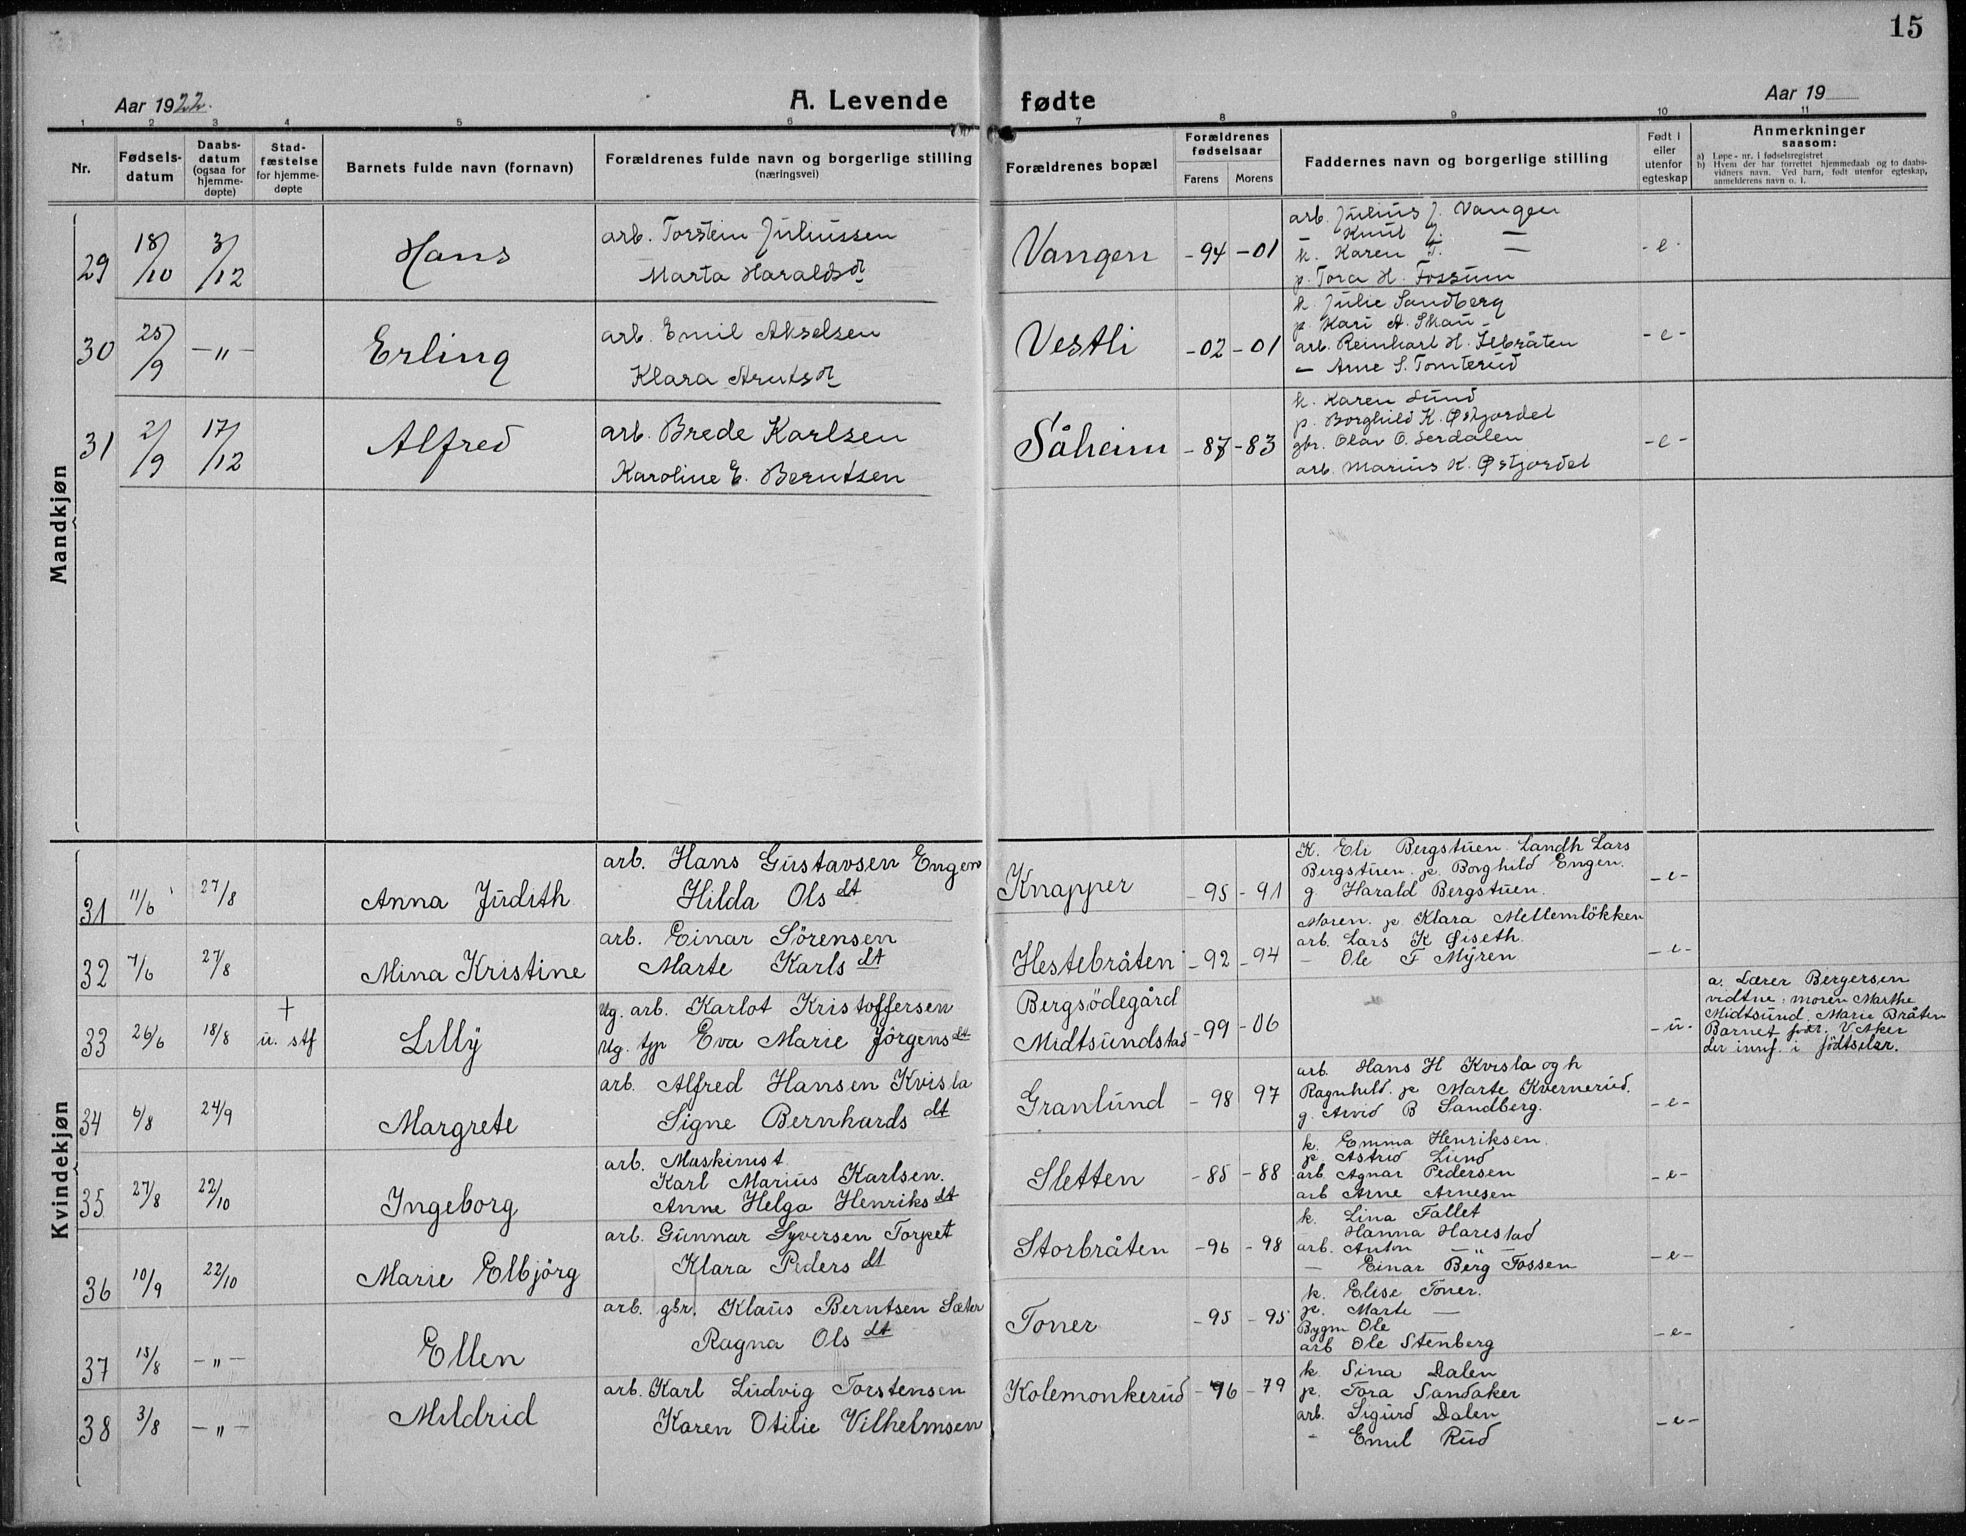 15
Aar 1922. A. Levende fødte Aar 19
1 2 3 4 5 6 7 8 9 10 11
Nr. Fødsels-datum Daabs-datum (ogsaa for hjemme-døpte) Stad-fæstelse for hjemme-døpte Barnets fulde navn (fornavn) Forældrenes fulde navn og borgerlige stilling (næringsvei) Forældrenes bopæl Forældrenes fødselsaar Farens Morens Faddernes navn og borgerlige stilling Født i eller utenfor egteskap Anmerkninger saasom:
a) Løpe-nr. i fødselsregistret
b) Hvem der har forrettet hjemmedaab og to daabs-vidners navn. Ved barn, født utenfor egteskap, anmelderens navn o. l.
Mandkjøn
29 18/10 3/12 Hans
arb. Torstein Juliussen
Marta Haraldsdt
Vangen - 94 - 01
arb. Julius J. Vangen
— Knut J. —
k. Karen T. —
p. Tora H. Fossum
- e -
30 25/9 — " — Erling
arb. Emil Akselsen
Klara Arntsdt
Vestli - 02 - 01
k. Julie Sandberg
p. Kari A. Skau
arb. Reinhart H. Ilbråten
— Arne S. Tomterud
- e -
31 2/9 17/12 Alfred
arb. Brede Karlsen
Karoline E. Berntsen
Såheim - 87 - 83
k. Karen Lund
p. Borghild K. Østjordet
gbr. Olav O. Serdalen
arb. Marius K. Østjordet
- e -
Kvindekjøn
31 11/6 27/8 Anna Judith
arb. Hans Gustavsen Engen
Hilda Olsdt
Knapper - 95 - 91
K. Eli Bergstuen. Landh Lars
Bergstuen. p. Borghild Engen.
g Harald Bergstuen.
- e -
32 7/6 27/8 Mina Kristine
arb. Einar Sörensen
Marte Karlsdt
Hestebråten - 92 - 94
Moren. p. Klara Mellemlökken
arb. Lars K Øiseth.
— Ole F Myren
- e -
33 26/6 18/8 † u. stf Lilly
Ug. arb. Karlot Kristoffersen
Ug. tjp Eva Marie Jörgensdt
Bergsödegård
Midtsundstad - 99 - 06
- u -
a. Lærer Bergersen
vidtne: moren Marthe
Midtsund. Marie Bråten
Barnet född i V. Aker
der innf. i födtselsr.
34 6/8 24/9 Margrete
arb. Alfred Hansen Kvisla
Signe Bernhardsdt
Granlund - 98 97
arb. Hans H Kvisla og h
Ragnhild. p Marte Kvernerud.
g. Arvid B Sandberg.
- e -
35 27/8 22/10 Ingeborg
arb. Maskinist
Karl Marius Karlsen.
Anne Helga Henriksdt
Sletten - 85 - 88
k. Emma Henriksen.
p Astrid Lund
arb Agnar Pedersen
arb Arne Arnesen
- e -
36 10/9 22/10 Marie Elbjörg
arb. Gunnar Syversen Torpet
Klara Pedersdt
Storbråten - 96 - 98
k. Lina Fallet
— Hanna Harestad
arb. Anton — " —
— Einar Berg Fossen
- e -
37 15/8 — " — Ellen
arb. gbr. Klaus Berntsen Sæter
Ragna Olsdt
Toner - 95 - 95
k. Elise Toner.
p. Marte —
Bygm Ole
arb Ole Stenberg
- e -
38 3/8 — " — Mildrid
arb. Karl Ludvig Torstensen
Karen Otilie Vilhelmsen
Kolemonkerud - 76 - 79
k Sina Dalen
p. Tora Sandaker
arb. Sigurd Dalen
— Emil Rud
- e -